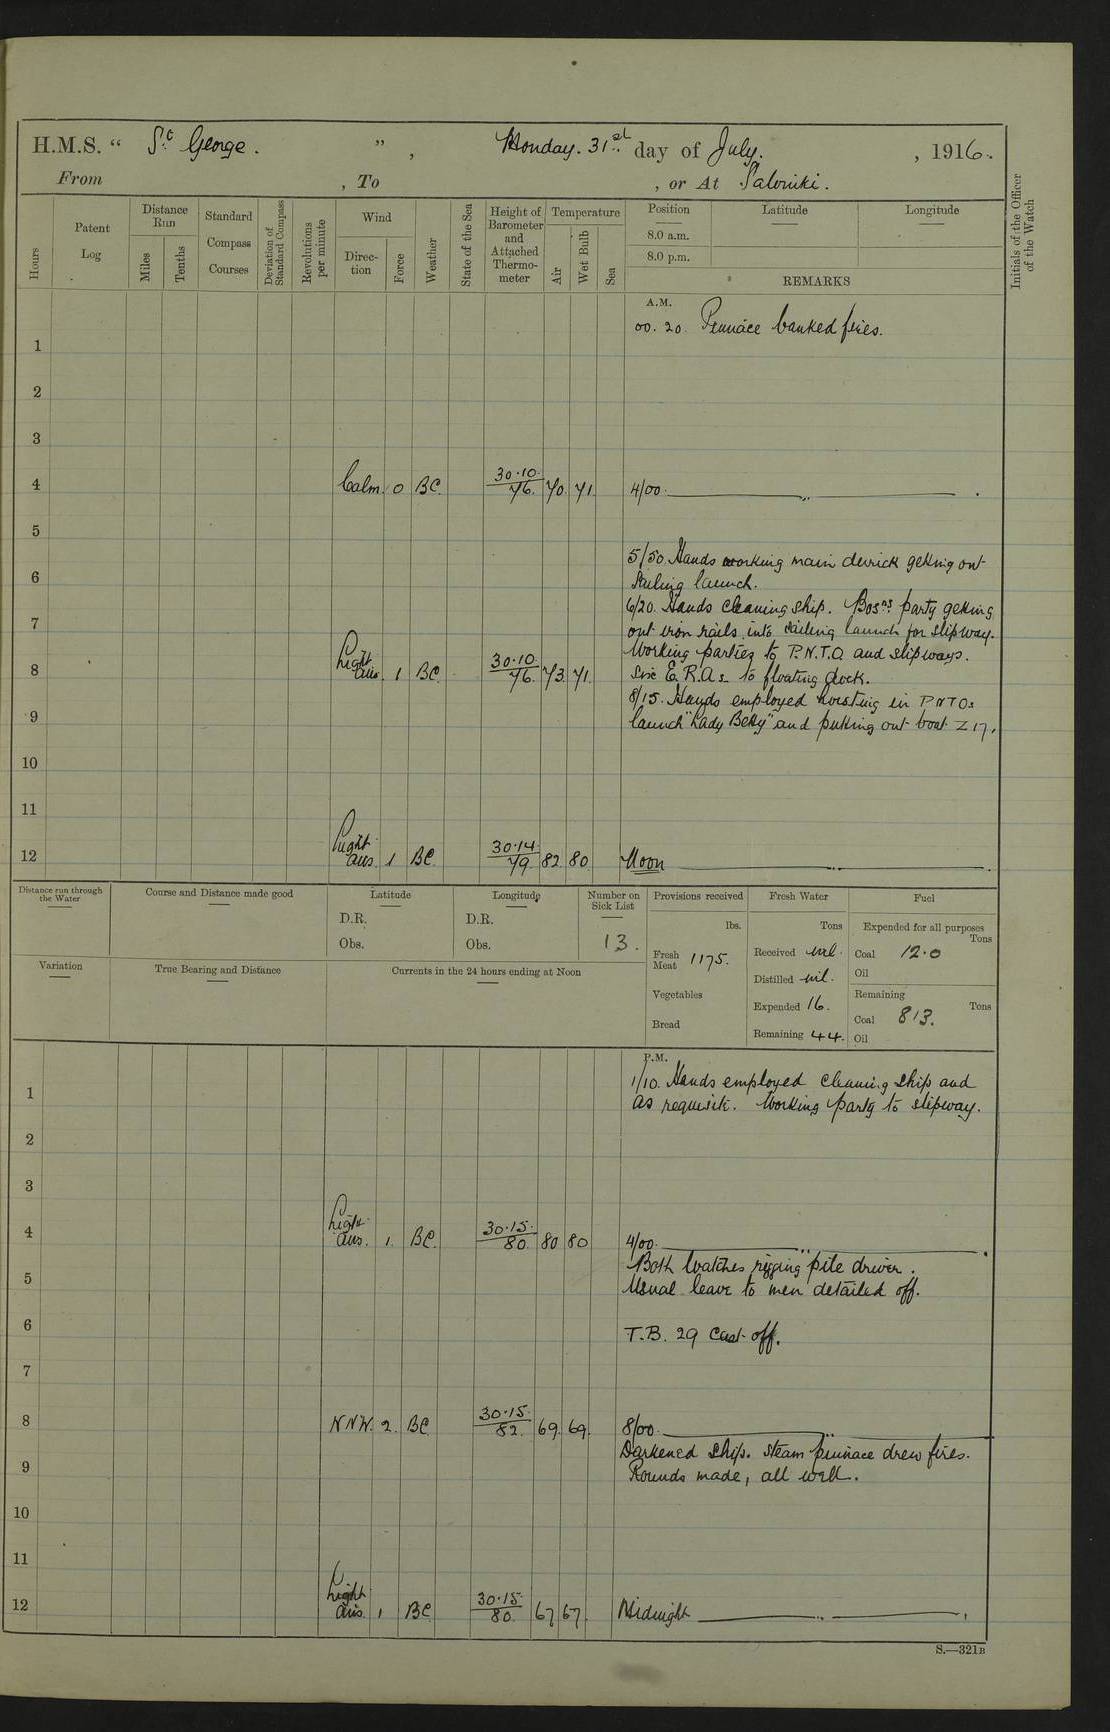 H.M.S. “ St George. ” , Monday. 31st day of July. , 1916.
From , To , or At Salonika.
Hours
Patent Log
Distance Run
Miles
Tenths
Standard Compass Courses
Deviation of Standard Compass
Revolutions per minute
Wind
Direction
Force
Weather
State of the Sea
Height of Barometer and Attached Thermometer
Temperature
Air
Wet Bulb
Sea
Position Latitude Longitude
8.0 a.m.
8.0 p.m.
REMARKS
Initials of the Officer of the Watch
A.M.
00.20. Pinnace banked fires.
1
2
3
4 Calm. 0 BC. 30.10/76. 70. 71. 4/00.
5
5/50. Hands working main derrick getting out
6 sailing launch.
6/20. Hands cleaning ship. Bosns party getting
7 out iron rails into sailing launch for slipway.
Working parties to P.N.T.O and slipways.
8 Light airs. 1 BC. 30.10/76. 73. 71. Six E.R.As to floating dock.
8/15. Hands employed hoisting in PNTOs
9 launch "Lady Betty" and putting out boat Z 17.
10
11
12 Light airs 1 BC 30.14/79. 82 80. Noon
Distance run through the Water
Course and Distance made good
Latitude
D.R.
Obs.
Longitude
D.R.
Obs.
Number on Sick List
13.
Variation
True Bearing and Distance
Currents in the 24 hours ending at Noon
Provisions received
lbs.
Fresh Meat 1175.
Vegetables
Bread
Fresh Water
Tons
Received nil.
Distilled nil.
Expended 16.
Remaining 44.
Fuel
Expended for all purposes
Tons
Coal 12.0
Oil
Remaining
Tons
Coal 813.
Oil
P.M.
1/10. Hands employed cleaning ship and
1 as requisite. Working party to slipway.
2
3
4 Light airs. 1. BC. 30.15./80. 80 80 4/00.
Both watches rigging pile driver.
5 Usual leave to men detailed off.
6 T.B. 29 cast off.
7
8 NNW. 2. BC 30.15./82. 69. 69. 8/00.
Darkened ship. Steam pinnace drew fires.
9 Rounds made, all well.
10
11
12 Light airs. 1 BC 30.15./80. 67 67. Midnight
S.—321B